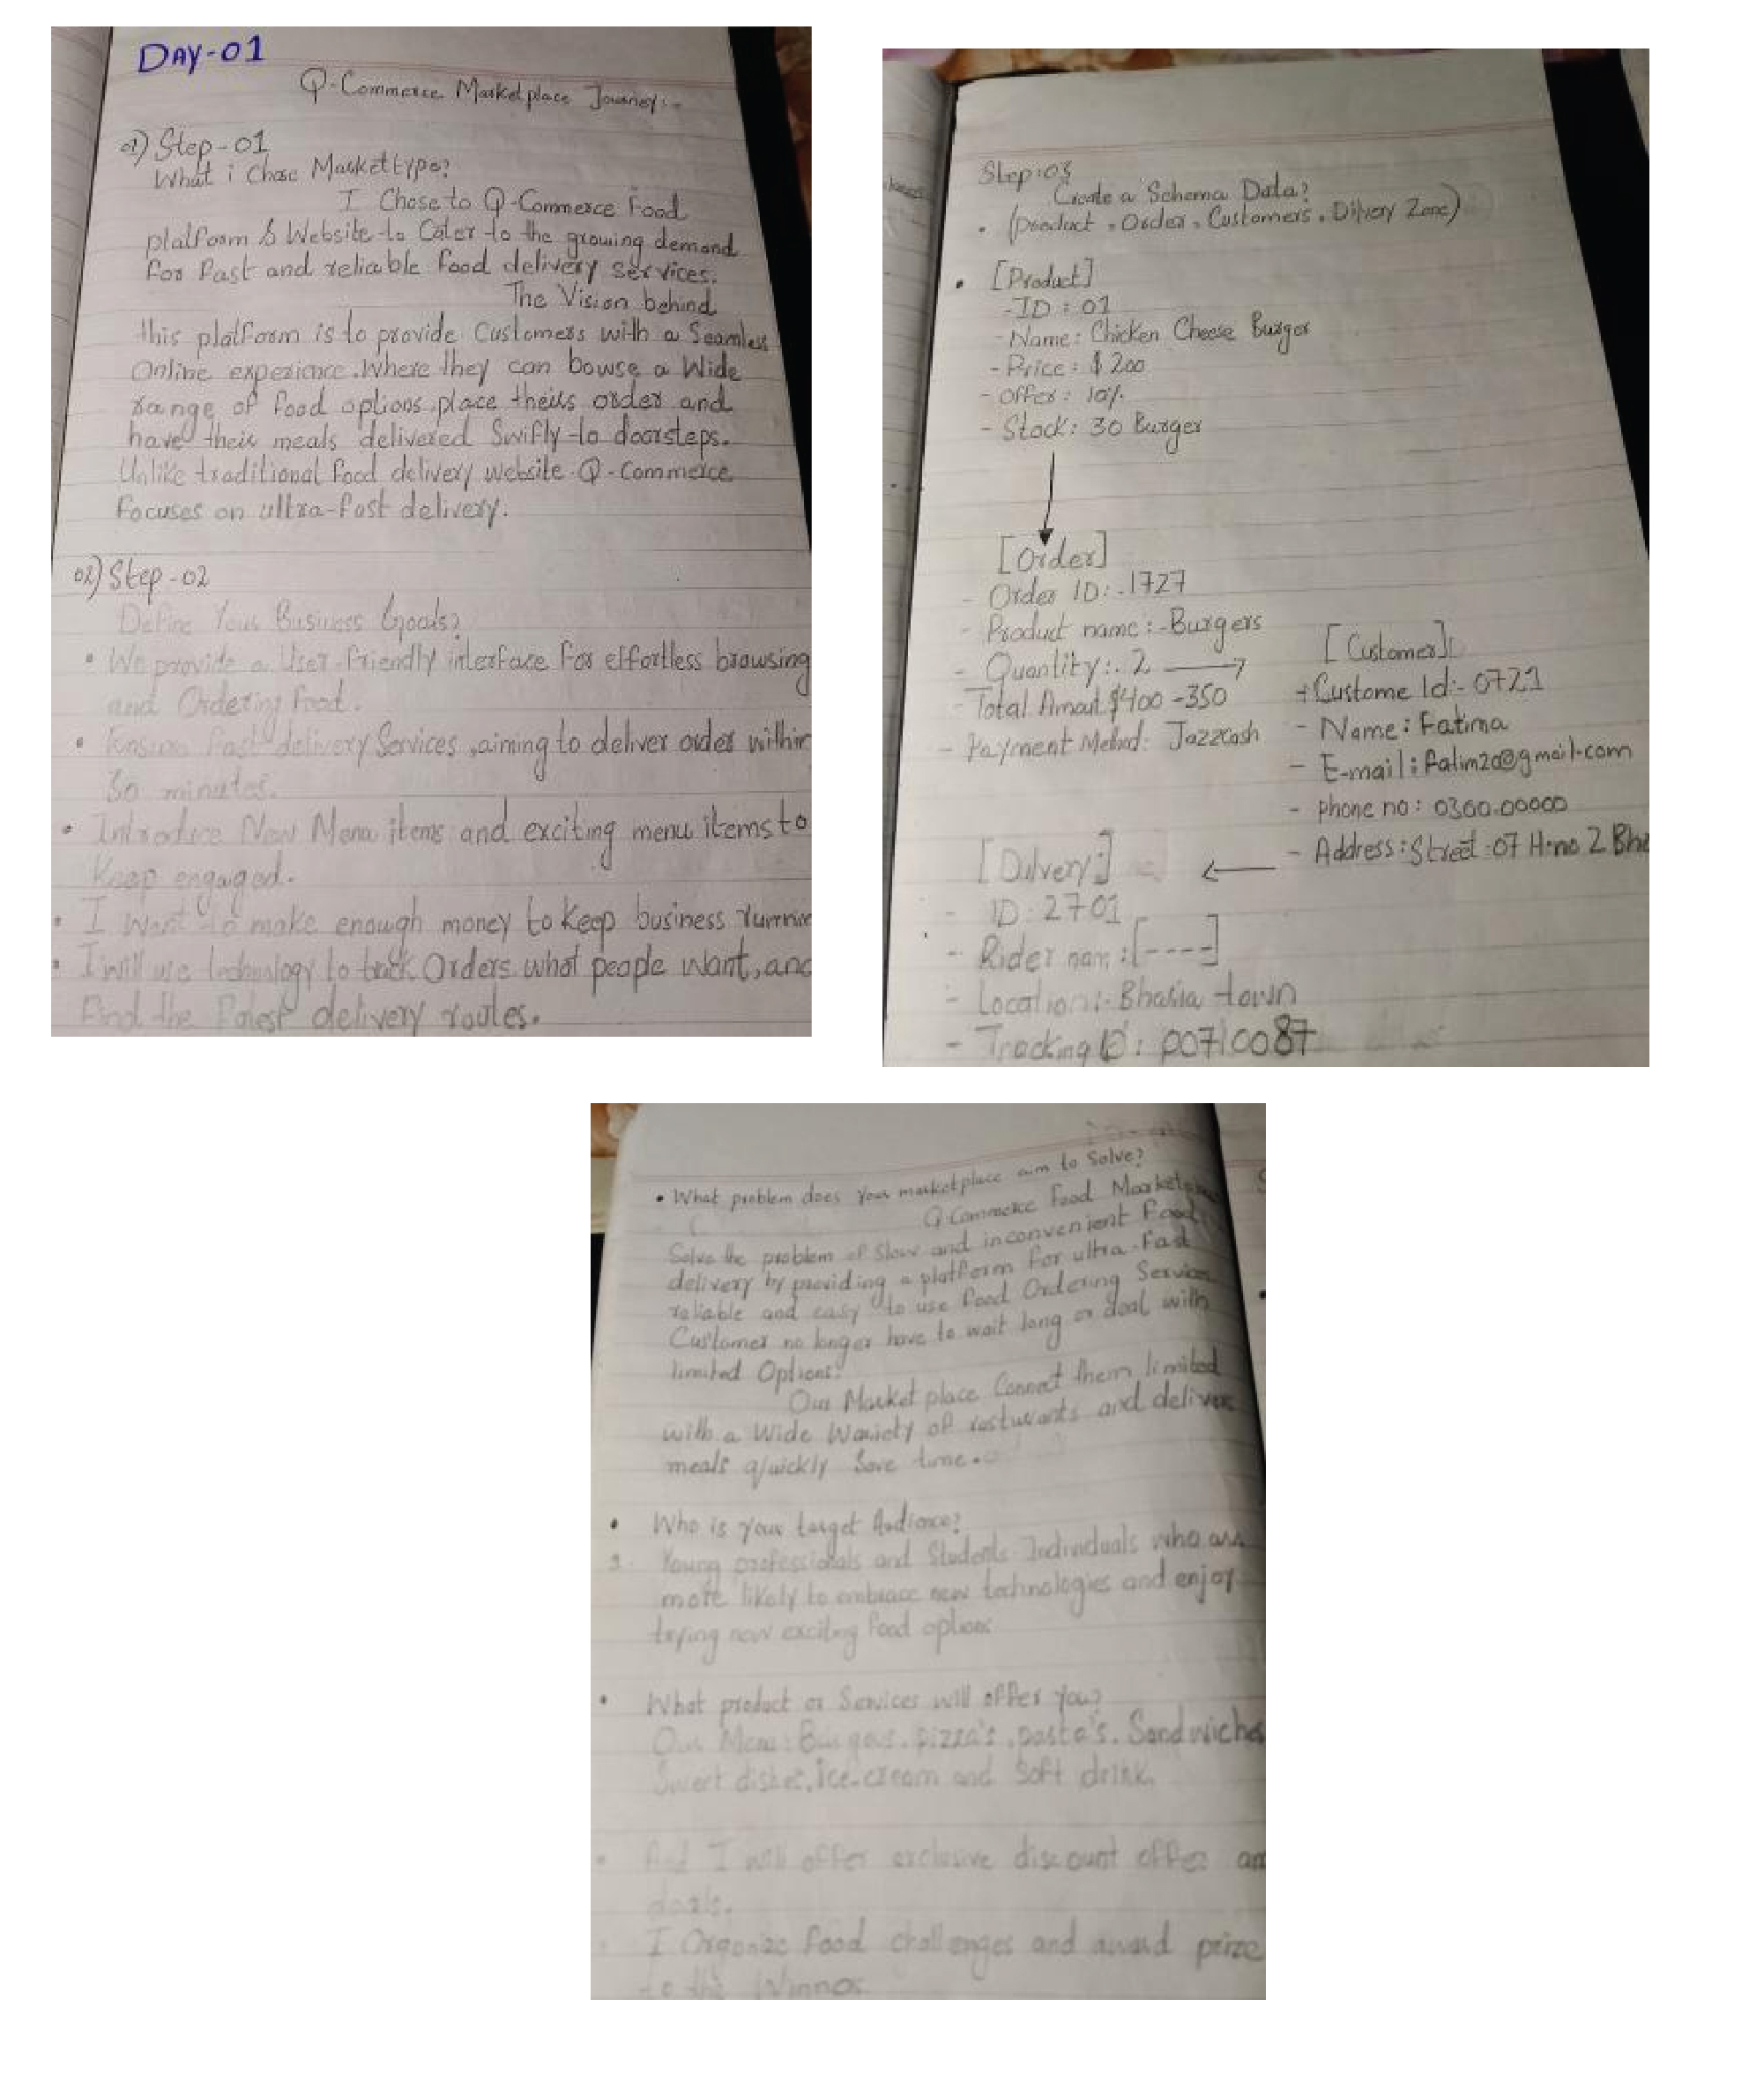 DAY-01
Q-Commerce Marketplace Journey:-
01) Step-01
What i Chose Market type?
I Chose to Q-Commerce Food
platform & Website to Cater to the growing demand
for fast and reliable food delivery services.
The Vision behind
this platform is to provide Customers with a Seamless
Online experience. Where they can bowse a Wide
range of food options, place theirs order and
have their meals delivered Swifly to doorsteps.
Unlike traditional food delivery website Q-Commerce
focuses on ultra-fast delivery.
02) Step-02
Define Your Business Goals?
• We provide a User friendly interface for effortless browsing
and Ordering food.
• Ensure Fast delivery Services, aiming to deliver order within
30 minutes.
• Introduce New Menu items and exciting menu items to
Keep engaged.
• I Want to make enough money to keep business
• I will use technology to track Orders what people want, and
Find the delivery routes.
Step:03
Create a Schema Data?
• (product, Order, Customers, Dilvery Zone)
• [Product]
- ID : 01
- Name: Chicken Cheese Burger
- Price: $ 200
- Offer: 10%
- Stock: 30 Burger
[Order]
- Order ID:-1727
- Product name:-Burgers
- Quantity:. 2
- Total Amout $400-350
- Payment Method: Jazzcash
[Customer]
+ Custome Id:- 0721
- Name: Fatima
- E-mail: fatim20@gmail.com
- Phone no: 0300.00000
- Address: Street :07 H:no 2
[Dilvery:]
- ID:2701
- Rider nam:[----]
- Location:- Bharia town
- Tracking ID: 00710087
• What problem does Your marketplace aim to Solve?
Q-Commerce Food
Solve the problem of Slow and inconvenient Food
delivery by providing a platform for ultra-fast
reliable and easy to use food Ordering Service
Customer no longer have to wait long or deal with
limited Options.
Our Market place Connect them limited
with a Wide Wariety of resturants and deliver
meals quickly Save time.
• Who is your target Audience?
Young professionals and Students Individuals who are
more likely to embrace new technologies and enjoy
trying new exciting food options
• What product or Services will offer you?
Our Menu: Burgers, pizza's, pasta's, Sandwiches
Sweet dishes, ice-cream and Soft drink.
• And I will offer exclusive discount offer
deals.
• I Organize food challenges and award prize
to the Winner